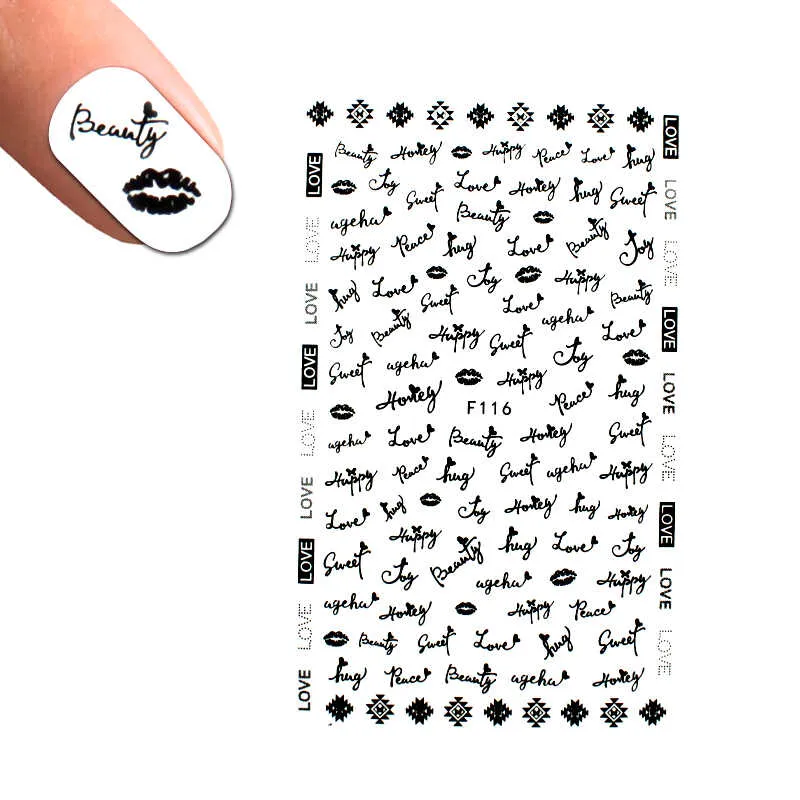 Beauty
LOVE LOVE LOVE LOVE LOVE LOVE LOVE LOVE LOVE
Beauty Honey Happy Peace Love hug
Joy Love Honey hug Sweet
ageha Sweet Beauty
Happy Peace hug Love Beauty Joy
hug Love Joy Happy
Sweet Love Beauty
Joy Beauty Happy ageha Love
Sweet ageha Joy
Happy
Honey F116 Peace hug
ageha Love Beauty Honey Sweet
Happy Peace hug Sweet ageha Happy
Love hug Joy Honey hug Honey
Happy
Sweet Joy Beauty hug Love Joy
ageha Happy
ageha Honey Happy Peace
Beauty Sweet Love hug Sweet
hug Peace Beauty ageha Honey
LOVE LOVE LOVE LOVE LOVE LOVE LOVE LOVE LOVE